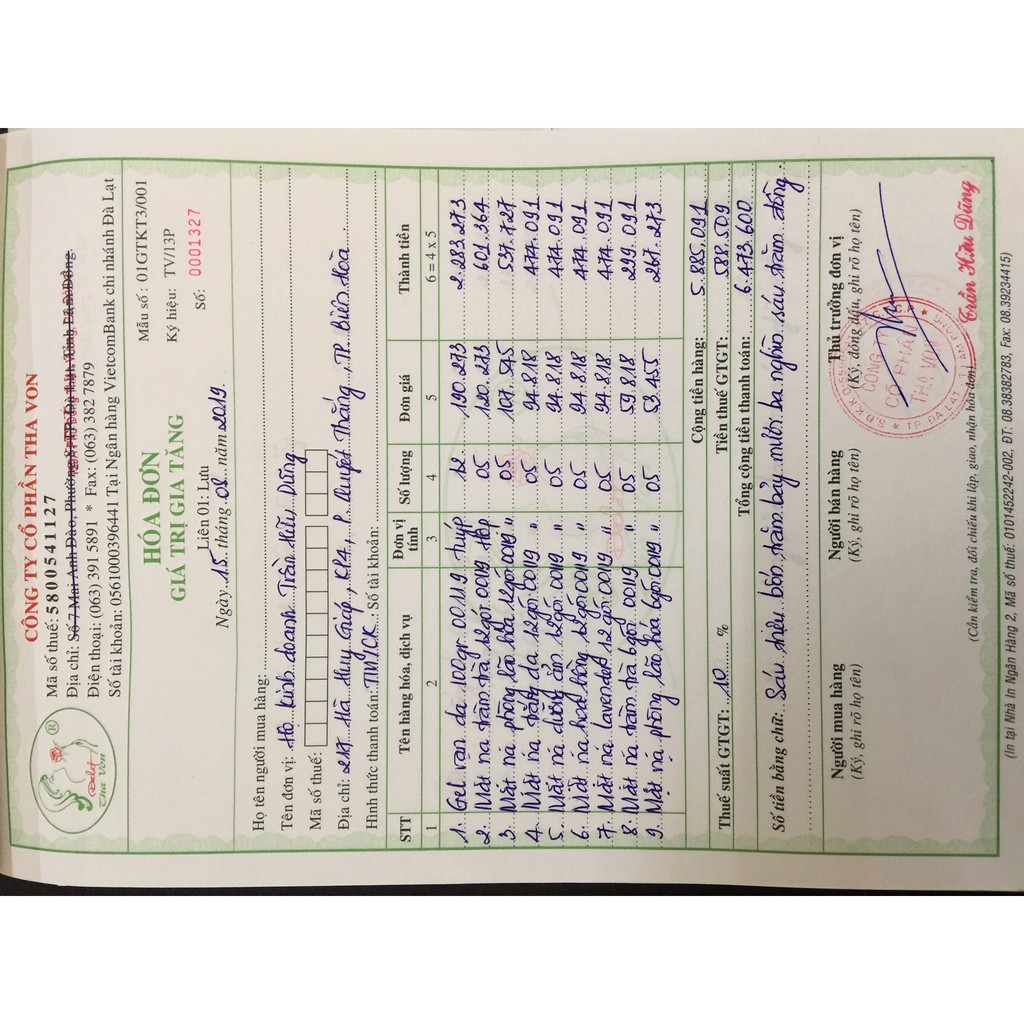 CÔNG TY CỔ PHẦN THA VON
Mã số thuế: 5800541127
Địa chỉ: Số 7 Mai Anh Đào, Phường 8, TP. Đà Lạt, Tỉnh Lâm Đồng.
Điện thoại: (063) 391 5891 * Fax: (063) 382 7879
Số tài khoản: 0561000396441 Tại Ngân hàng VietcomBank chi nhánh Đà Lạt
®
Dalat
Tha Von
HÓA ĐƠN
GIÁ TRỊ GIA TĂNG
Liên 01: Lưu
Ngày 15 tháng 08 năm 2019
Mẫu số : 01GTKT3/001
Ký hiệu: TV/13P
Số: 0001327
Họ tên người mua hàng:
Tên đơn vị: Hộ kinh doanh Trần Hữu Dũng
Mã số thuế:
Địa chỉ: 247 Hà Huy Giáp, KP4, P. Quyết Thắng, TP. Biên Hoà
Hình thức thanh toán: TM/CK Số tài khoản:
STT Tên hàng hóa, dịch vụ Đơn vị tính Số lượng Đơn giá Thành tiền
1 2 3 4 5 6 = 4 x 5
1. Gel rạn da 100gr 00119 tuýp 12 190.273 2.283.273
2. Mặt nạ tràm trà 12 gói 0019 Hộp 05 120.273 601.364
3. Mặt nạ phòng lão hóa 12 gói 0019 " 05 107.545 537.727
4. Mặt nạ trắng da 12 gói 0019 " 05 94.818 474.091
5. Mặt nạ dưỡng ẩm 12 gói 0019 " 05 94.818 474.091
6. Mặt nạ hoa hồng 12 gói 0019 " 05 94.818 474.091
7. Mặt nạ lavender 12 gói 0019 " 05 94.818 474.091
8. Mặt nạ tràm trà 6 gói 0019 " 05 59.818 299.091
9. Mặt nạ phòng lão hóa 6 gói 0019 " 05 53.455 267.273
Cộng tiền hàng: 5.885.091
Thuế suất GTGT: 10 % Tiền thuế GTGT: 588.509
Tổng cộng tiền thanh toán: 6.473.600
Số tiền bằng chữ: Sáu triệu bốn trăm bảy mươi ba nghìn sáu trăm đồng
Người mua hàng Người bán hàng Thủ trưởng đơn vị
(Ký, ghi rõ họ tên) (Ký, ghi rõ họ tên) (Ký, đóng dấu, ghi rõ họ tên)
CÔNG TY
CỔ PHẦN
THA VON
TP ĐÀ LẠT
Trần Hữu Dũng
(Cần kiểm tra, đối chiếu khi lập, giao, nhận hóa đơn)
(In tại Nhà In Ngân Hàng 2, Mã số thuế: 0101452242-002, ĐT: 08.38382783, Fax: 08.39234415)